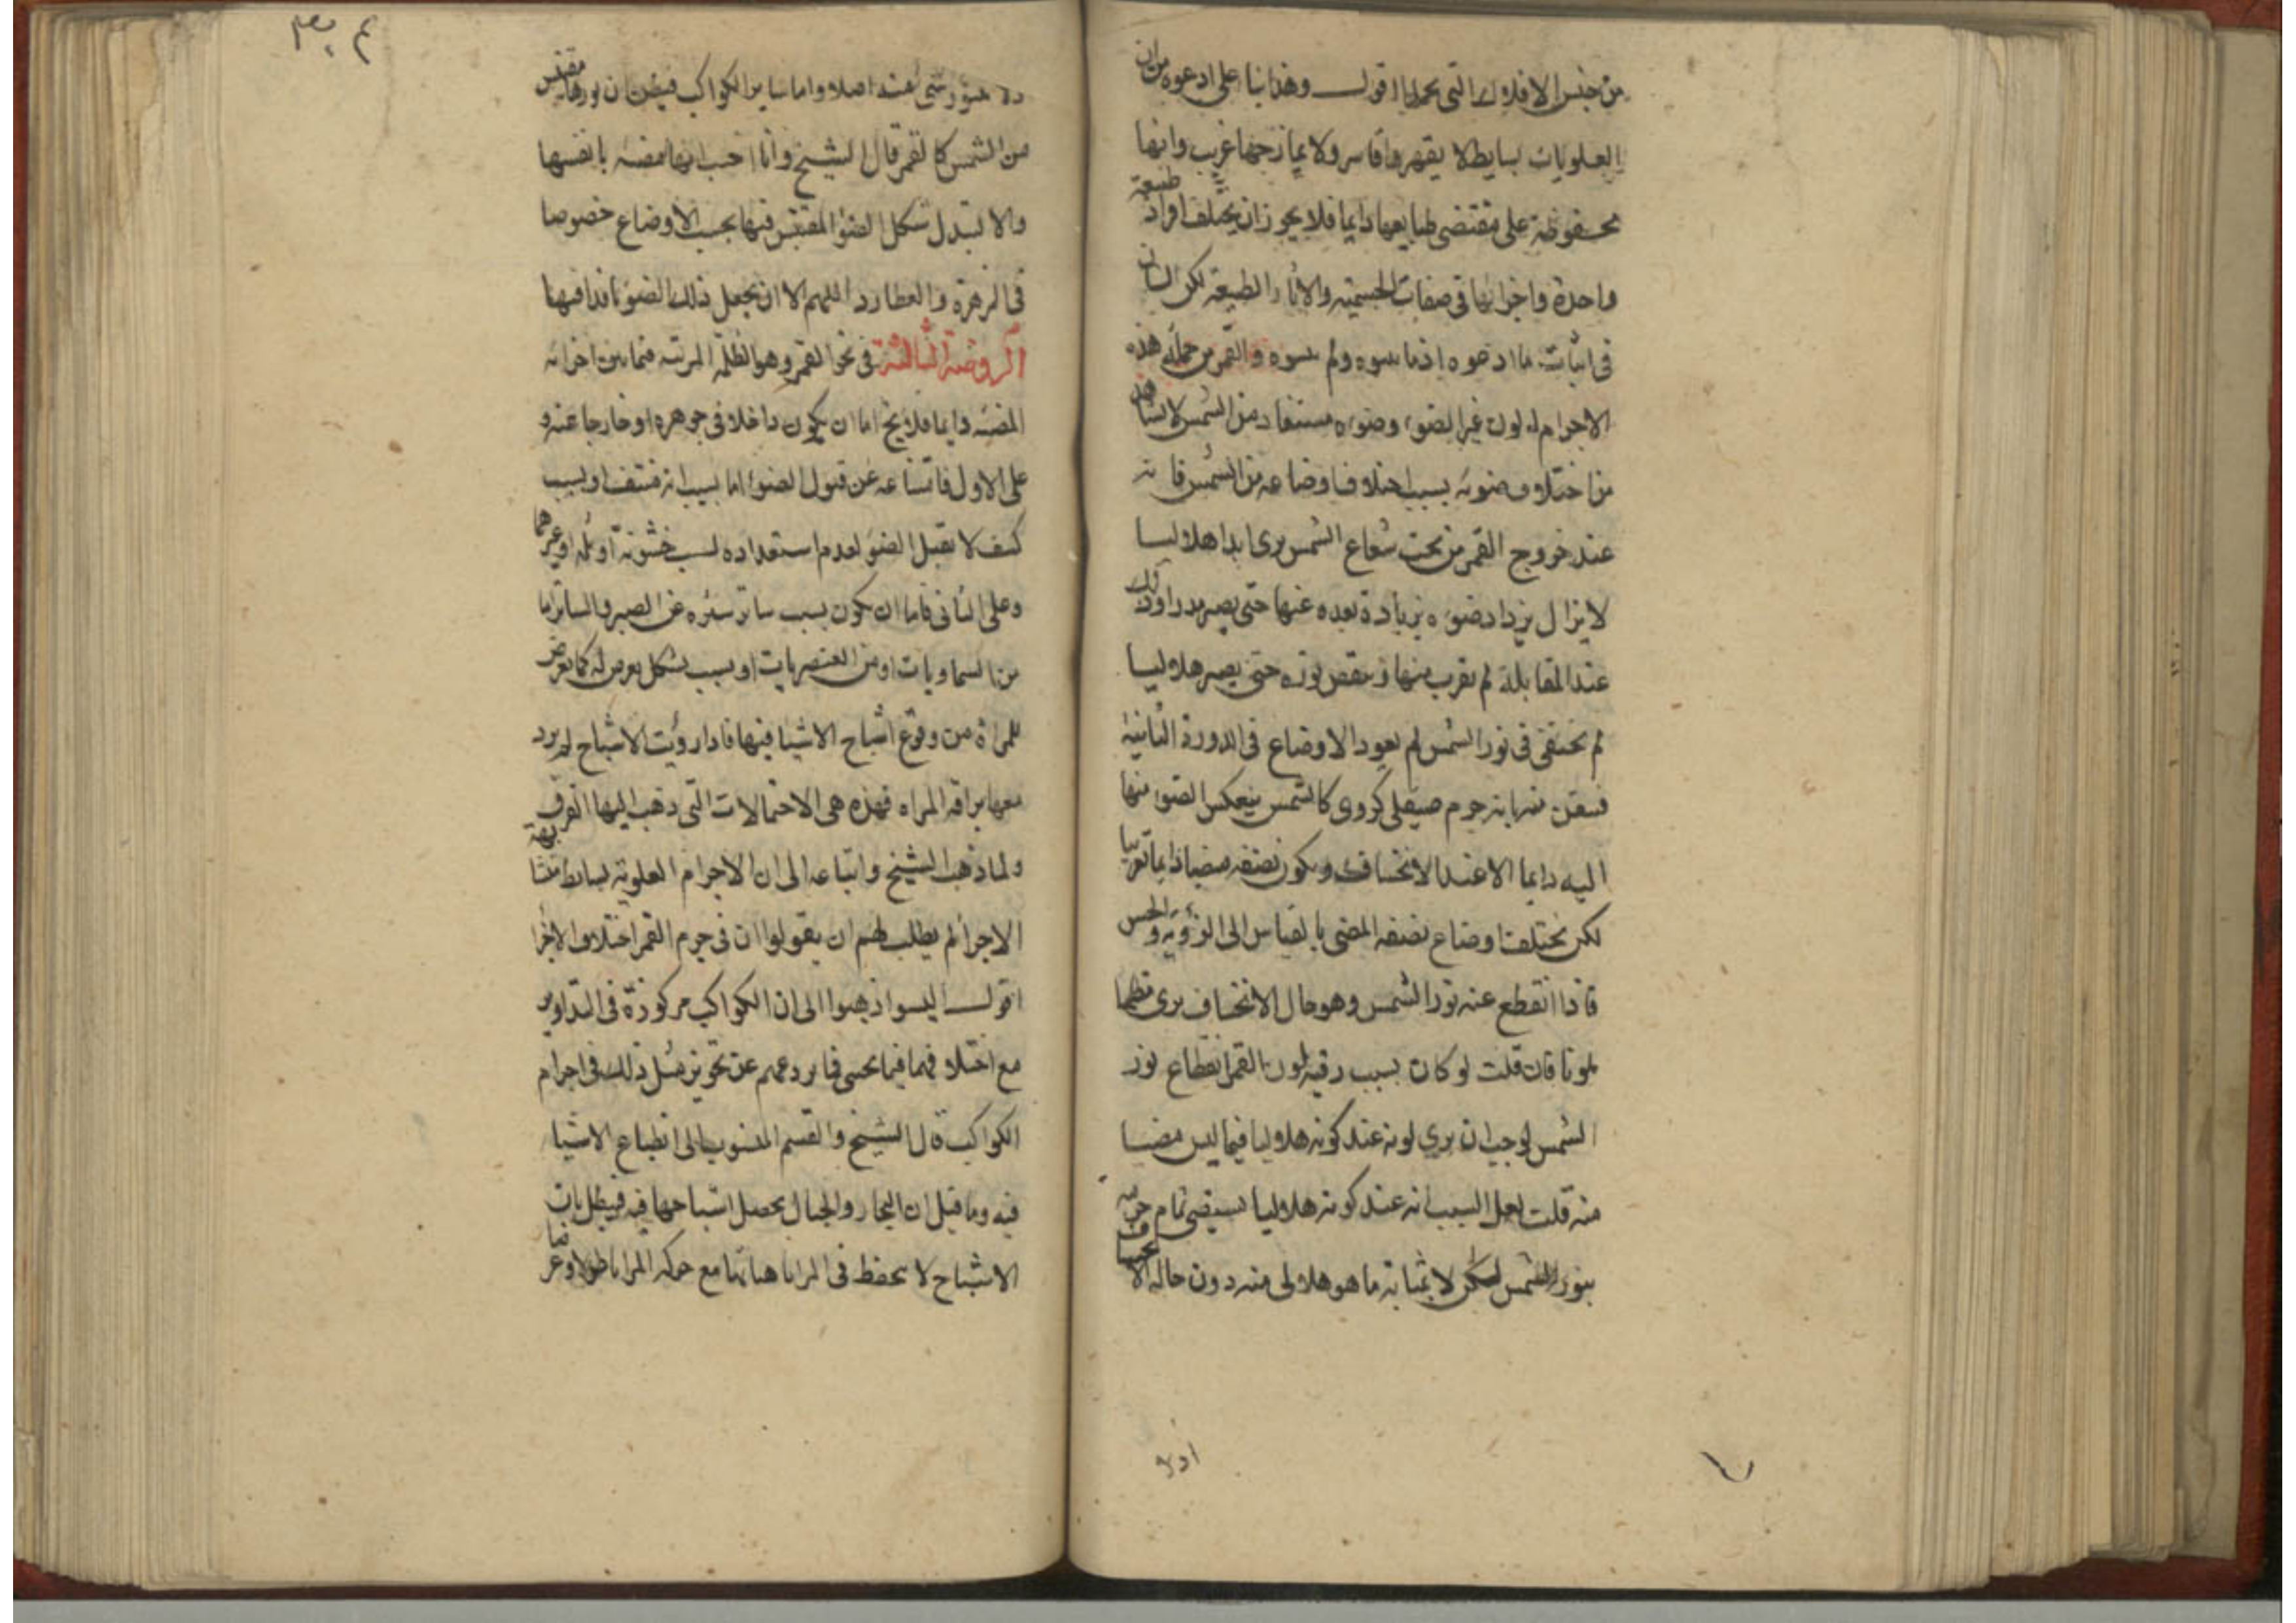 من جنس الافلاك التى تحملها اقول وهذا بنا على ادعوه من ان
العلويات بسايط لا يقهرها قاسر ولا يمازجها غريب وانها
محفوظة على مقتضى طبايعها دايما فلا يجوز ان يختلف افراد طبيعة
واحدة واجزائها فى صفات الجسمية والاثار الطبيعة لكن الشان
فى اثبات ما ادعوه اذ ما بينوه ولم والقمر من جملة هذه
الاجرام له لون غير الضوء وضوءه مستفاد من الشمس لا لشاهد
من اختلاف ضوئه بسبب اختلاف اوضاعه من الشمس فانه
عند خروج القمر من تحت شعاع الشمس يرى ابدا هلاليا
لا يزال يزداد ضوءه بزيادة بعده عنها حتى يصير بدرا وذلك
عند المقابلة ثم يقرب منها وينقص نوره حتى يصير هلاليا
ثم يختفى فى نور الشمس ثم يعود الاوضاع فى الدورة الثانية
منه بانه جرم صيقلى كروى كالشمس ينعكس الضوء منها
اليه دايما الا عند الانخساف ويكون نصفه مضيا دايما تقريبا
لكن يختلف اوضاع نصفه المضى بالقياس الى الرؤية والحس
فاذا انقطع عنه نور الشمس وهو حال الانخساف يرى مظلما
ملونا فان قلت لو كان بسبب رقيه لون القمر انقطاع نور
الشمس لوجب ان يرى لونه عند كونه هلاليا فيما ليس مضيا
منه قلت لعل السبب انه عند كونه هلاليا يستضى تمام جرمه
بنور الشمس لكن لا بمثابة ما هو هلالى منه دون حاله الانخساف
اذ لا
ده ضوء شى عنه اصلا واما ساير الكواكب فيظن ان نورها مقتبس
من الشمس كالقمر قال الشيخ وانا احسب انها مضيه بانفسها
والا لتبدل شكل الضوء المقتبس فيها بحسب الاوضاع خصوصا
فى الزهرة والعطارد اللهم الا ان يجعل ذلك الضوء نافذا فيها
الروضة الثالثة فى محو القمر وهو الظلمة المرئيه فيما بين اجزائه
المضيه دايما فلا يخ اما ان يكون داخلا فى جوهره او خارجا عنه و
على الاول فامتناعه عن قبول الضوء اما بسبب انه مشف او بسبب
كثيف لا يقبل الضوء لعدم استعداده لسبب خشونة او ثلمة او غيرهما
وعلى الثانى فاما ان يكون بسبب ساتر ستره عن البصر والساتر اما
من السماويات او من العنصريات او بسبب تشكل يعرض له كما يعرض
للمراة من وقوع اشباح الاشيا فيها فاذا رؤيت الاشباح لم يرد
معها براقه المراه فهذه هى الاحتمالات التى ذهب اليها الفرق
ولما ذهب الشيخ واتباعه الى ان الاجرام العلوية بسايط متشابهة
الاجزا لم يطلب لهم ان يقولوا ان فى جرم القمر اختلاف الاجزا
اقول اليسوا ذهبوا الى ان الكواكب مركوزة فى التداوير
مع اختلافهما فيما يحس فما يردعهم عن تجويز مثل ذلك فى اجرام
الكواكب قال الشيخ والقسم المنسوب الى انطباع الاشيا
فيه وما قيل ان البحار والجبال يحصل اشباحها فيه فيبطل بان
الاشباح لا يحفظ فى المرايا هياتها مع حركة المرايا طولا وعرضا